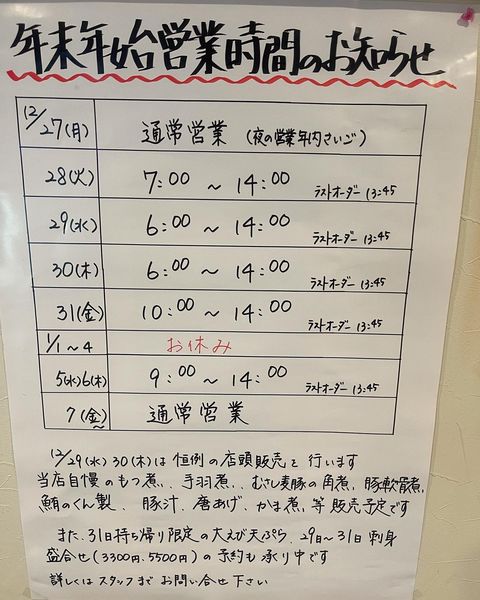 年末年始営業時間のお知らせ
12/27(月) 通常営業 (夜の営業年内さいご)
28(火) 7:00 ~ 14:00 ラストオーダー 13:45
29(水) 6:00 ~ 14:00 ラストオーダー 13:45
30(木) 6:00 ~ 14:00 ラストオーダー 13:45
31(金) 10:00 ~ 14:00 ラストオーダー 13:45
1/1~4 お休み
5(水)6(木) 9:00 ~ 14:00 ラストオーダー 13:45
7(金)~ 通常営業
12/29(水) 30(木)は 恒例の店頭販売を 行います
当店自慢のもつ煮、手羽煮、むさし麦豚の角煮、豚軟骨煮、
鮪のくん製、豚汁、唐あげ、かま煮、等 販売予定です
また、31日持ち帰り限定の大えび天ぷら、29日~31日 刺身
盛合せ(3300円、5500円)の予約も承り中です
詳しくはスタッフまでお問い合せ下さい